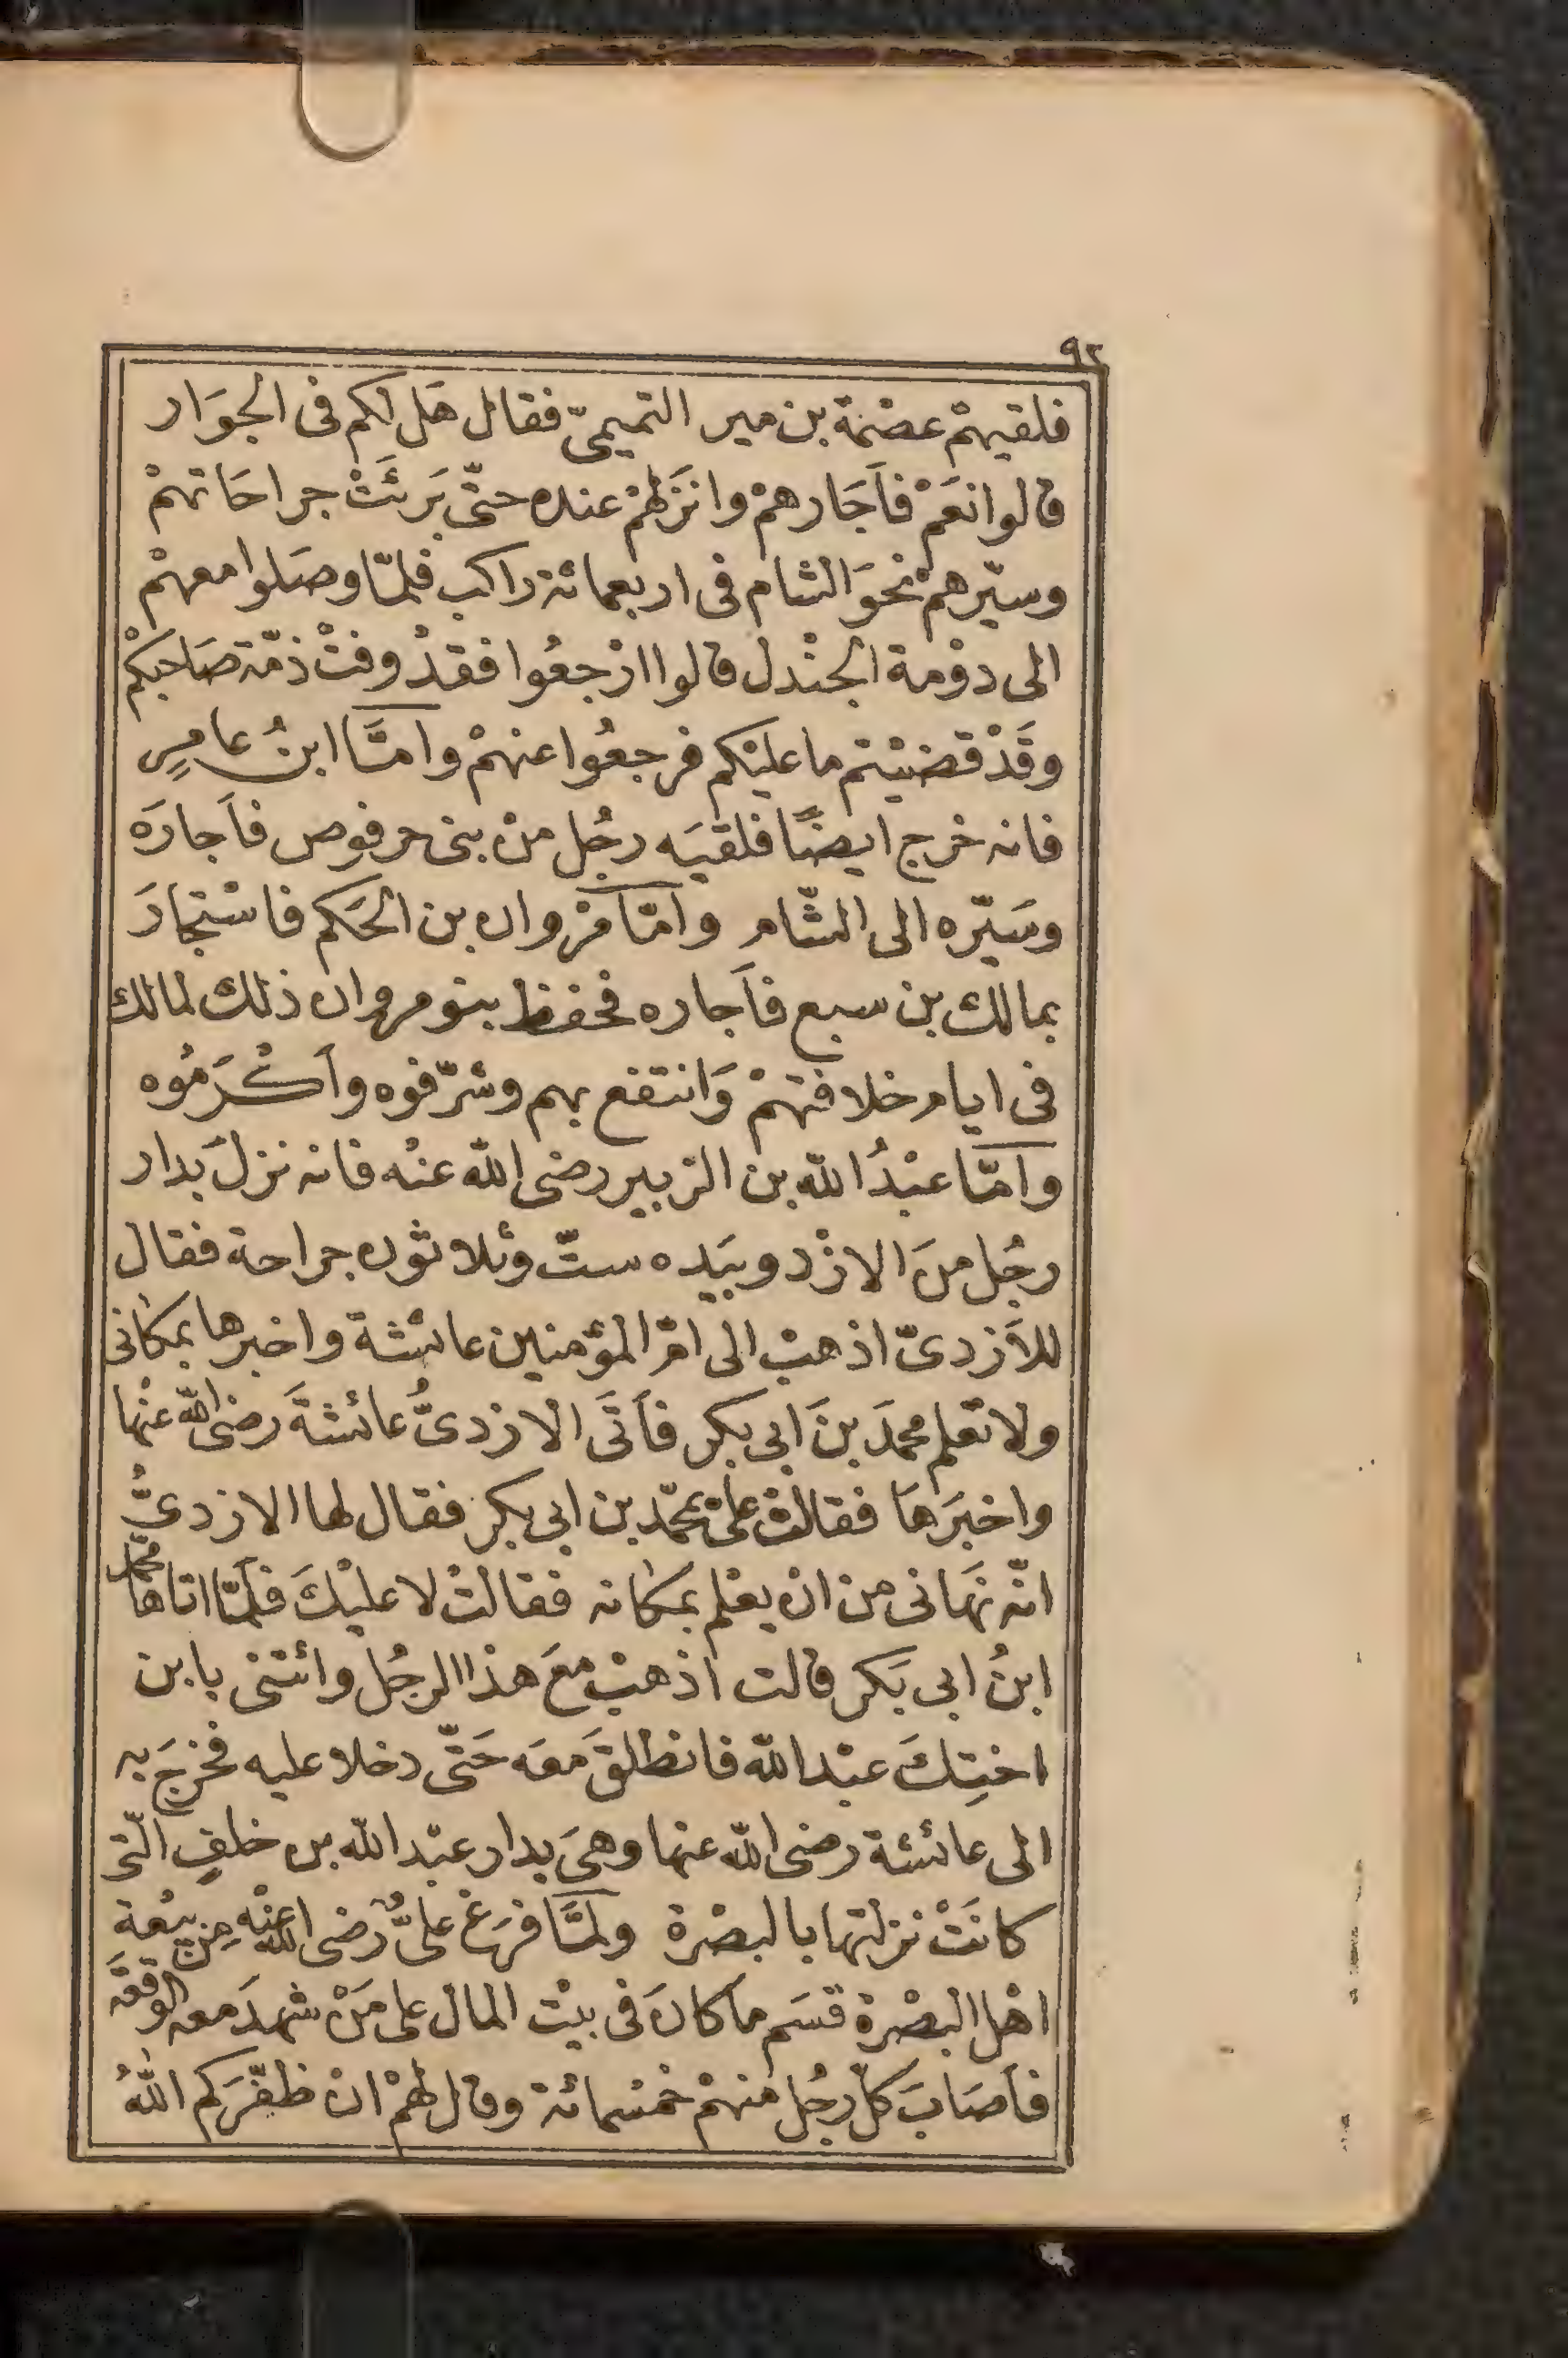 ٩٢
فلقيهمْ عصْمة بن مير التميمىّ فقال هَل لكم فى الجوَار
قالوا نعَمْ فاَجَارهمْ وانزَلهمْ عنده حتّى بَرئَتْ جراحَاتهمْ
وسيّرهمْ نحوَ الشام فى اربعمائة راكب فلمّا وصَلوا معهمْ
الى دوْمة الجنْدل قالوا ارْجعُوا فقدْ وفتْ ذمّة صَاحبكمْ
وقَدْ قضيْتم ما عليْكم فرجعُوا عنهمْ وامّا ابنُ عامرٍ
فانه خرج ايضًا فلقيَه رجُل منْ بنى حرفوص فاَجارَه
وسَيّره الى الشّام وامّا مرْوان بن الحَكم فاسْتجارَ
بمالك بن سبع فاَجاره فحفظ بنو مروان ذلك لمالك
فى ايام خلافتهمْ وَانتقع بهم وشرّفوه وأكْرَمُوه
وامّا عبْدُ الله بن الزبير رضى الله عنْه فانه نزلَ بدار
رجُل منَ الازْد وبيَده ستّ وثلاثون جراحة فقال
للاَزدىّ اذهبْ الى امّ المؤمنين عائشة واخبرها بمكانى
ولا تعْلم محمدَ بنَ ابى بكر فاَتَى الازدىُّ عائشةَ رضى الله عنْها
واخبَرهَا فقالتْ علىّ بمحمّد بن ابى بكر فقال لها الازدىُّ
انّه نهَانى من انْ يعْلم بمكانه فقالتْ لا عليْكَ فلمّا اتاها محمّد
ابنُ ابى بَكر قالت اذهبْ معَ هذا الرجُل وائتنى بابن
اختِكَ عبْد الله فانطلقَ معَه حَتّى دخلا عليه فخرجَ به
الى عائشة رضى الله عنها وهىَ بدار عبْد الله بن خلفٍ الّتى
كانَتْ نزلتها بالبصْرة ولمّا فرَغ علىٌّ رضى الله عنْه مِن بيْعة
اهْل البصْرة قسَم ما كانَ فى بيْت المال على مَنْ شهدَ معه الوقعَة
فاَصَابَ كلّ رجُل منهمْ خمْسمائة وقال لهمْ انْ ظفّرَكم اللهُ